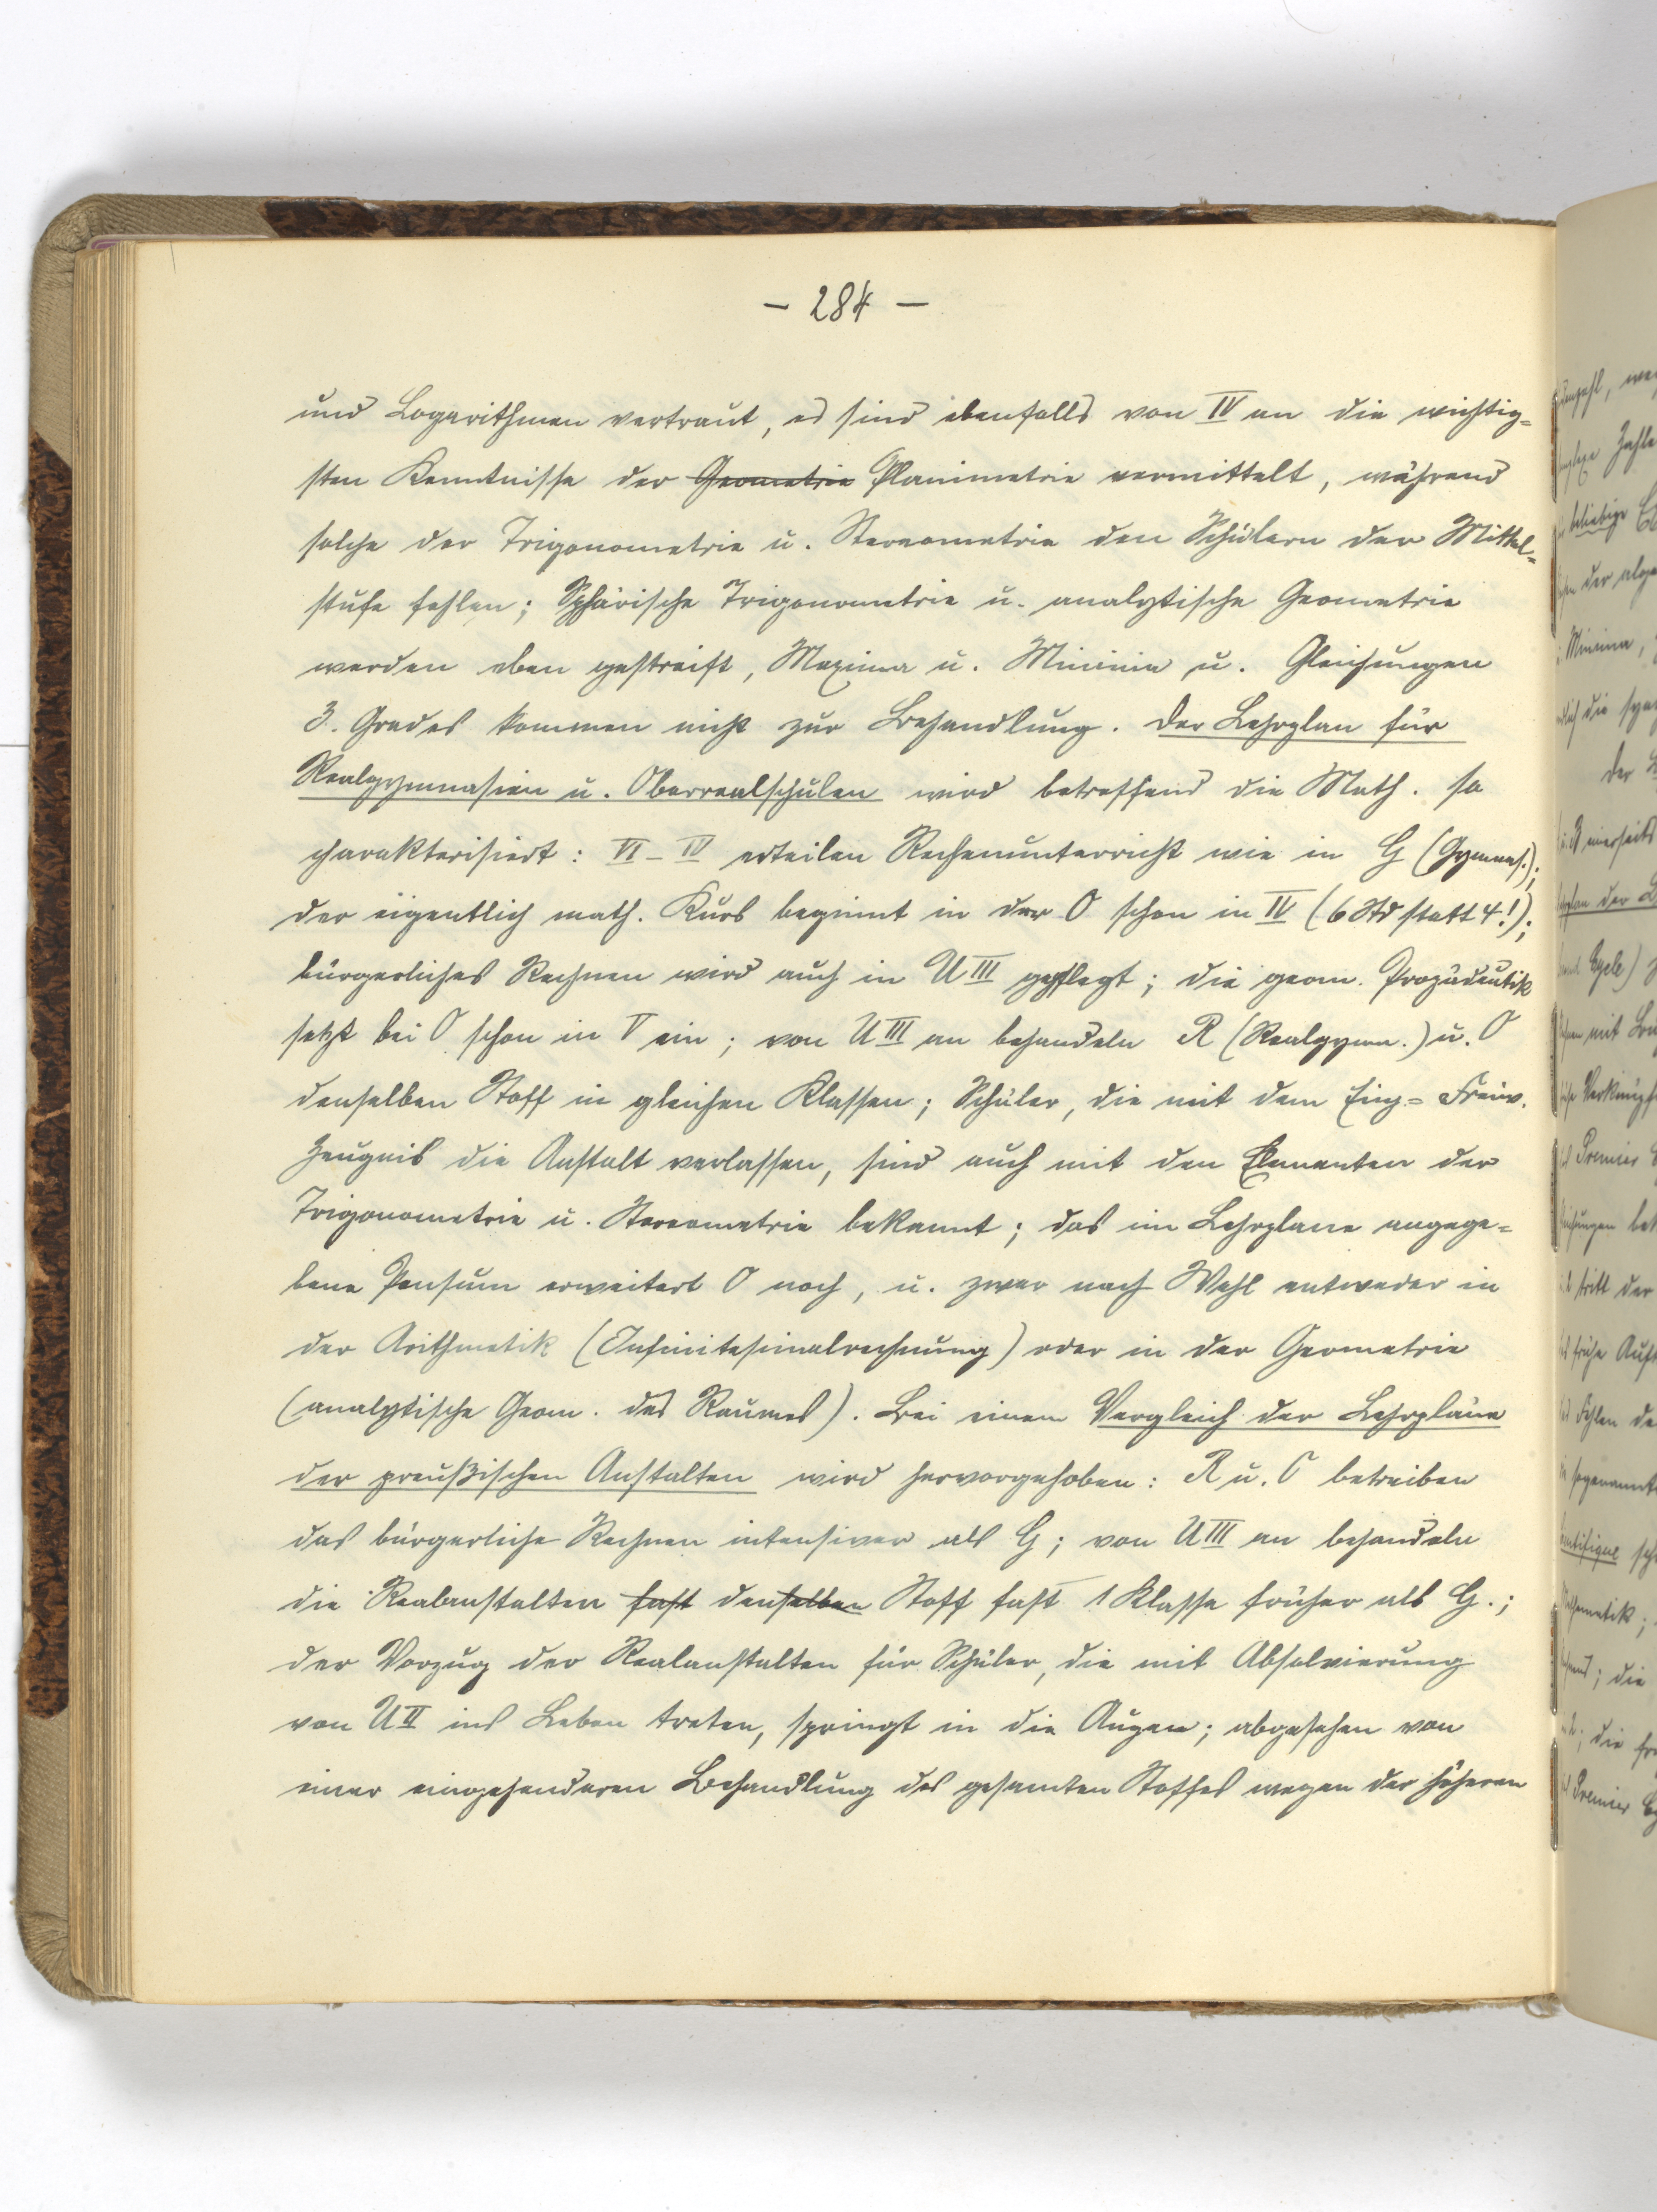 – 284 –
und Logarithmen vertraut, es sind ebenfalls von IV an die wichtig=
sten Kenntnisse der Geometrie Planimetrie vermittelt, während
solche der Trigonometrie u. Stereometrie den Schülern der Mittel=
stufe fehlen; Sphärische Trigonometrie u. analytische Geometrie
werden eben gestreift, Maxima u. Minima u. Gleichungen
3. Grades kommen nicht zur Behandlung. Der Lehrplan für
Realgymnasien u. Oberrealschulen wird betreffend die Math. so
charakterisiert: VI – IV erteilen Rechenunterricht wie in G (Gymnas.);
der eigentlich math. Kurs beginnt in der O schon in IV (6 Std statt 4!);
bürgerliches Rechnen wird auch in UIII gepflegt; die geom. Propädeutik
setzt bei O schon in V ein; von UIII an behandeln R (Realgymn.) u. O
denselben Stoff in gleichen Klassen; Schüler, die mit dem Einj.= Freiw.
Zeugnis die Anstalt verlassen, sind auch mit den Elementen der
Trigonometrie u. Stereometrie bekannt; das im Lehrplane angege=
bene Pensum erweitert O noch, u. zwar nach Wahl entweder in
der Arithmetik (Infinitesimalrechnung) oder in der Geometrie
(analytische Geom. des Raumes). Bei einem Vergleich der Lehrpläne
der preußischen Anstalten wird hervorgehoben: R u. O betreiben
das bürgerliche Rechnen intensiver als G; von UIII an behandeln
die Realanstalten fast denselben Stoff fast 1 Klasse früher als G.;
der Vorzug der Realanstalten für Schüler, die mit Absolvierung
von UII ins Leben treten, springt in die Augen; abgesehen von
einer eingehenderen Behandlung des gesamten Stoffes wegen der höheren